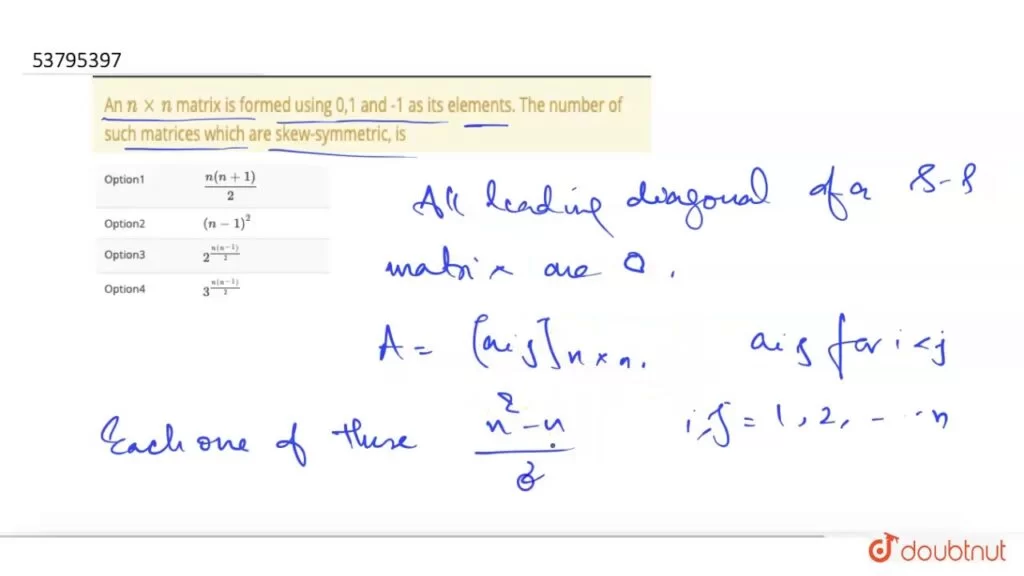 53795397
An n × n matrix is formed using 0,1 and -1 as its elements. The number of
such matrices which are skew-symmetric, is
Option1 n(n + 1)/2
Option2 (n − 1)^2
Option3 2^(n(n−1)/2)
Option4 3^(n(n−1)/2)
All leading diagonal of a S-S
matrix are 0.
A = [aij] n × n. aij for i < j
Each one of these (n^2 − n)/2 i,j = 1, 2, - - - n
doubtnut